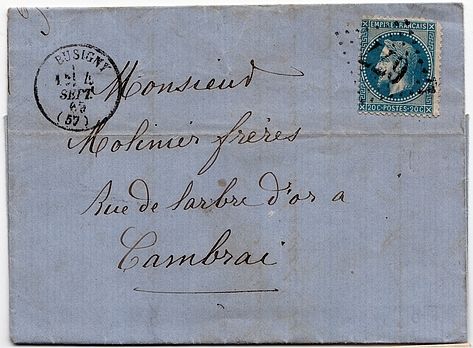 BUSIGNY
SEPT
(57)
EMPIRE FRANÇAIS
20C POSTES 20C
Monsieur
Molinier frères
Rue de larbre d'or a
Cambrai